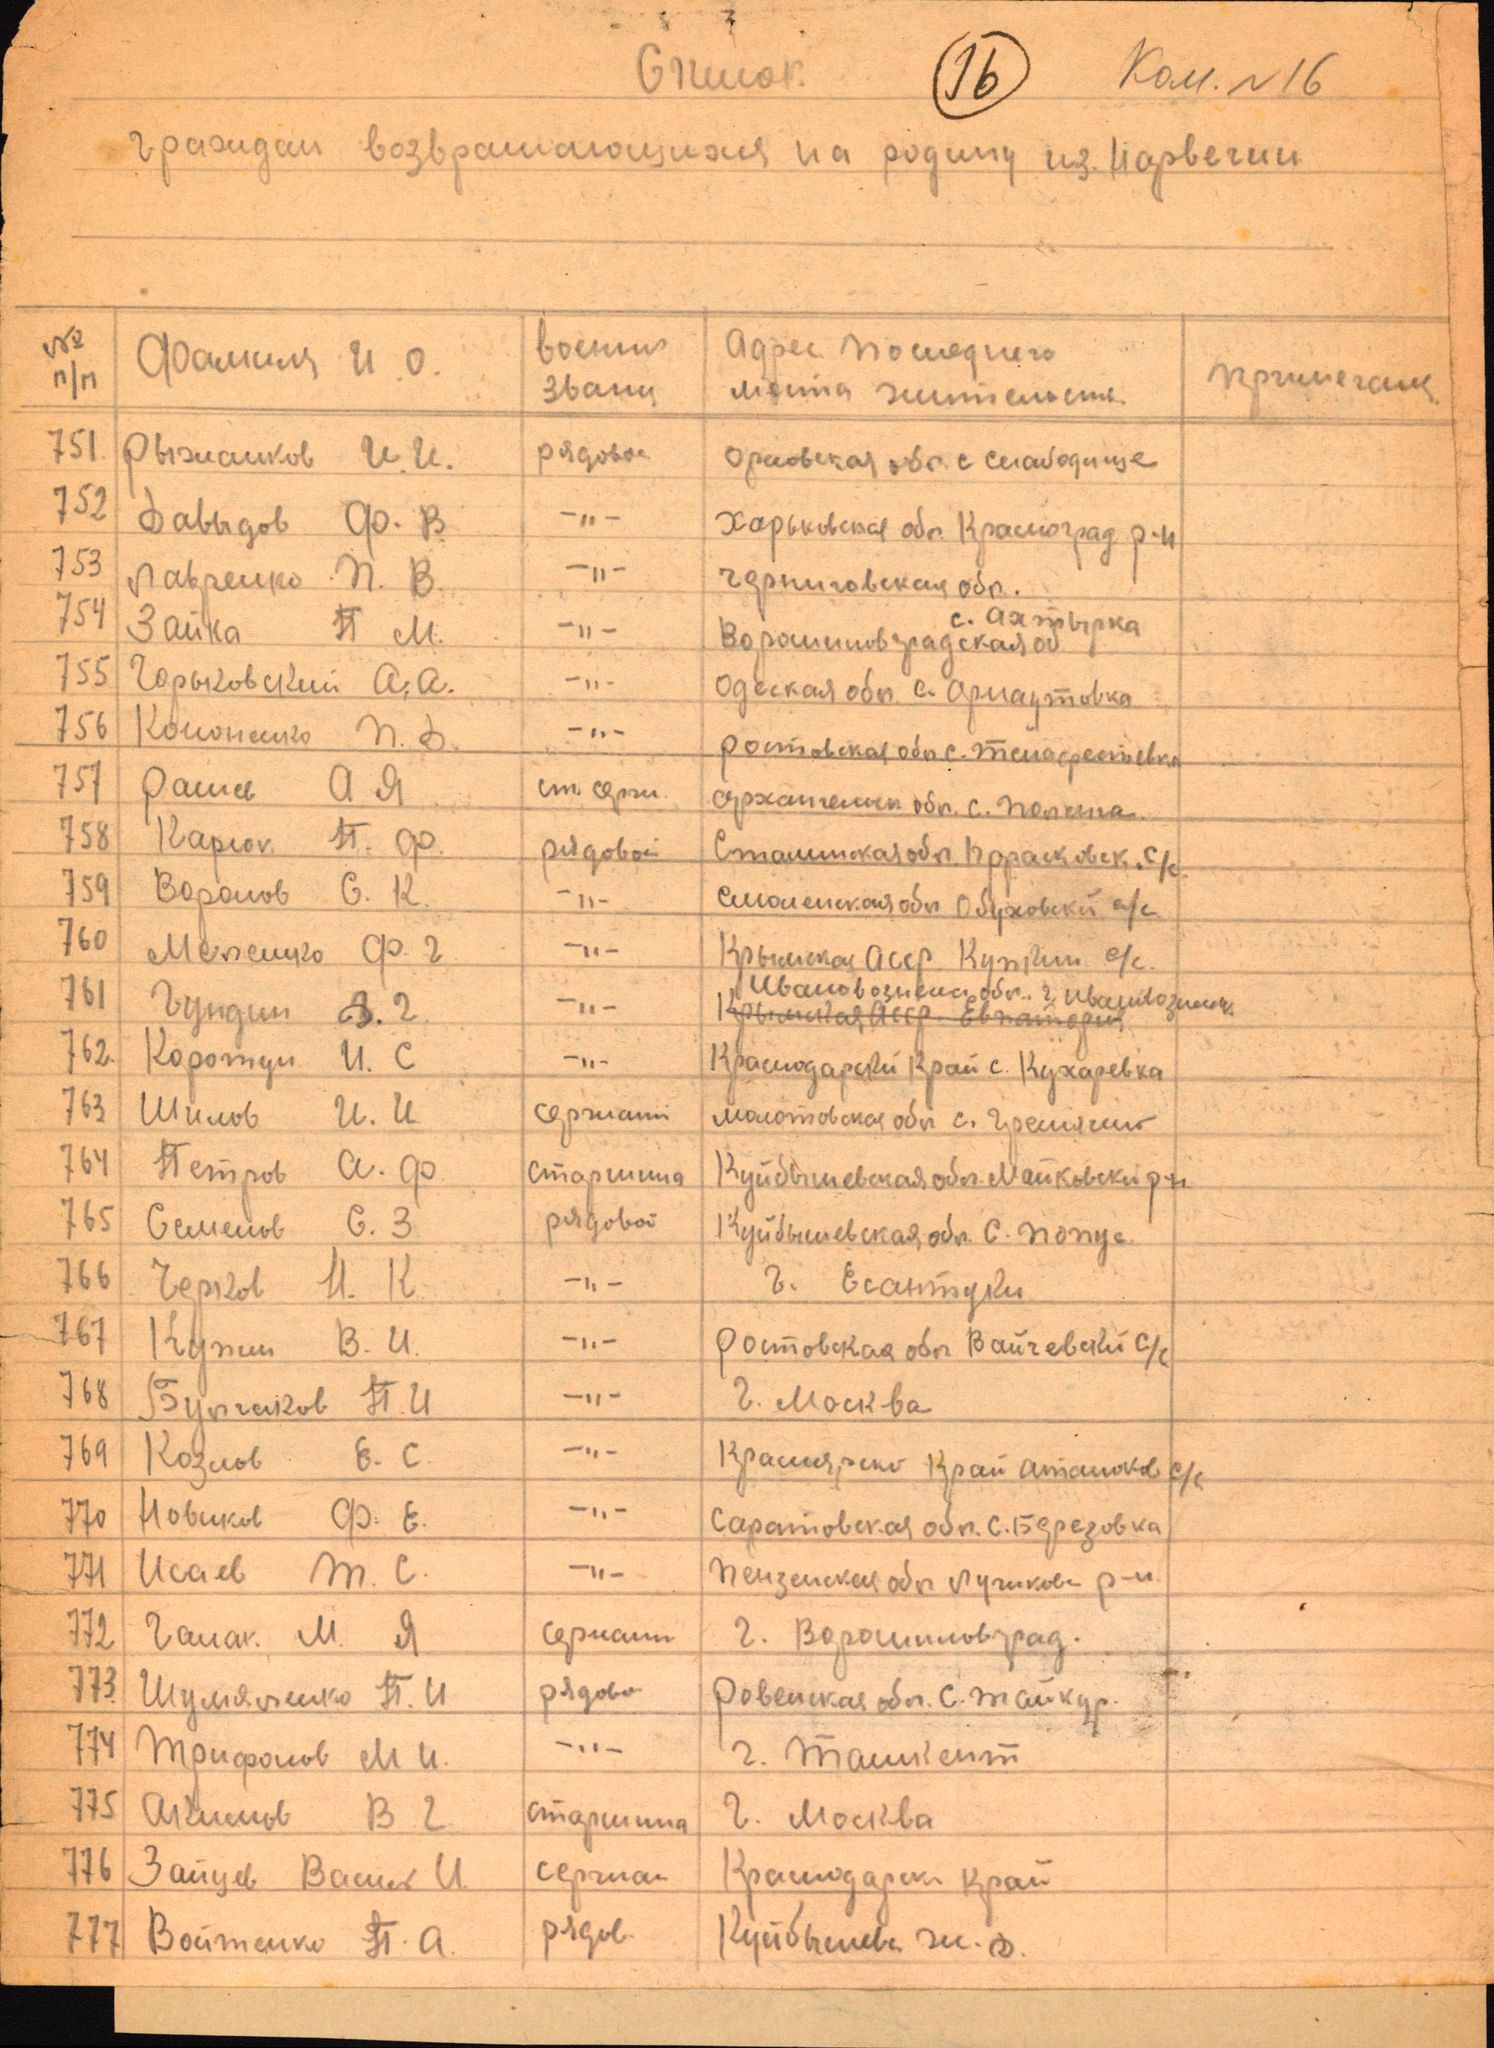 Список. 16 Ком. N 16
граждан возвращающихся на родину из Норвегии
№ п/п Фамилия И. О. воени звани Адрес последнего места жительств. примечани
751. Рыжанков И. И. рядовое Орловская обл. с Слабодище
752 Давыдов Ф. В -"- Харьковская обл. Красноград р-н
753 Лавренко П. В. -"- Черниговская обл.
754 Зайка П М. -"- Ворошиловградская об с. Ахтырка
755 Горьковский А. А. -"- Одеская обл. с. Арнаутовка
756 Кононенко П. Д. -"- Ростовская обл. с.
757 Рашев А Я ст. серж. Архангельск обл. с.
758 Карюк П. Ф. рядовой Сталинская обл. с/с.
759 Воронов С. К. -"- Смоленская обл Обуховский с/с
760 Ф. Г -"- Крымская Асср с/с.
761 Гундин З. Г. -"- Ивановознесен. обл. г. Ивановознесен.
Крымская Асср. Евпатория
762. Коротун И. С -"- Краснодарский Край с. Кухаревка
763 Шилов И. И сержант Молотовская обл с. Гремячинс
764 Петров А. Ф. старшина Куйбышевская обл. Майковски р-н
765 Семенов С. З рядовой Куйбышевская обл. С.
766 Черков Н. К. -"- г. Есантуки
767 Кужин В. И. -"- Ростовская обл с/с
768 Булгаков П. И -"- г. Москва
769 Козлов Е. С. -"- Красноярско Край Атаманов с/с
770 Новиков Ф. Е. -"- Саратовская обл. С. Березовка
771 Исаев Т. С. -"- Пензенская обл р-н
772 Галак. М. Я сержант г. Ворошиловград.
773. П. И рядово Ровенская обл. С. Тайкур.
774 Трифонов М И. -"- г. Ташкент
775 Акимов В Г старшина г. Москва
776 Зайцев Васил И. сержан Краснодарск Край
777 Войтенко П. А. рядов. Куйбышева ж. д.